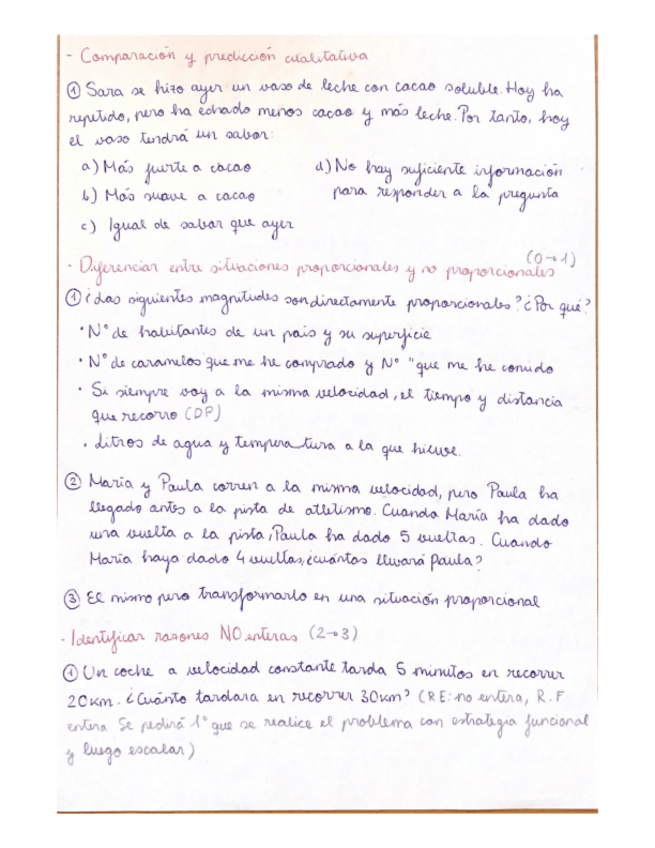 - Comparación y predicción cualitativa
① Sara se hizo ayer un vaso de leche con cacao soluble. Hoy ha
repetido, pero ha echado menos cacao y más leche. Por tanto, hoy
el vaso tendrá un sabor:
a) Más fuerte a cacao
b) Más suave a cacao
c) Igual de sabor que ayer
d) No hay suficiente información
para responder a la pregunta
(0→1)
- Diferenciar entre situaciones proporcionales y no proporcionales
① ¿Las siguientes magnitudes son directamente proporcionales? ¿Por qué?
· Nº de habitantes de un país y su superficie
· Nº de caramelos que me he comprado y Nº " que me he comido
· Si siempre voy a la misma velocidad, el tiempo y distancia
que recorro (DP)
· Litros de agua y temperatura a la que hierve.
② María y Paula corren a la misma velocidad, pero Paula ha
llegado antes a la pista de atletismo. Cuando María ha dado
una vuelta a la pista, Paula ha dado 5 vueltas. Cuando
María haya dado 4 vueltas, ¿cuántas llevará Paula?
③ El mismo pero transformarlo en una situación proporcional
- Identificar razones NO enteras (2→3)
① Un coche a velocidad constante tarda 5 minutos en recorrer
20km. ¿Cuánto tardara en recorrer 30km? (RE: no entera, R.F
entera Se pedirá 1º que se realice el problema con estrategia funcional
y luego escalar)